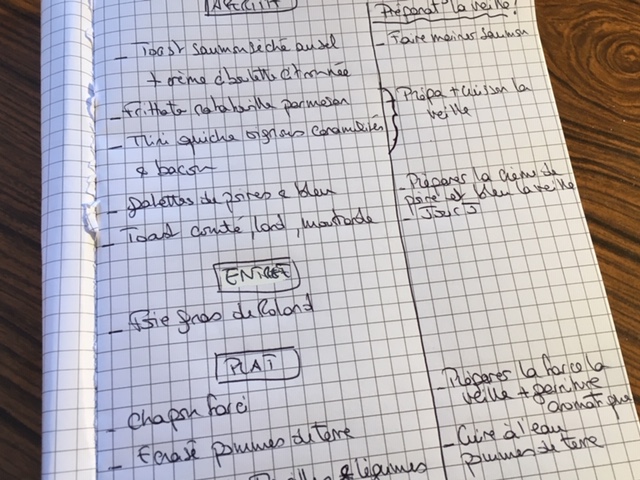 APERITIF
- Toast saumon séché au sel
+ crème ciboulette citronnée
- Frittata ratatouille parmesan
- Mini quiche oignons caramélisés
& bacon
- galettes de poires & bleu
- Toast comté, lard, moutarde
ENTREE
- Foie gras de Roland
PLAT
- Chapon farci
- Ecrasé pommes de terre
& légumes
Préparat° la veille !
- Faire mariner saumon
Prépa + cuisson la
veille
- Préparer la crème de
poire et bleu la veille
- Jour J
- Préparer la farce la
veille + garniture
aromatique
- Cuire à l'eau
pommes de terre